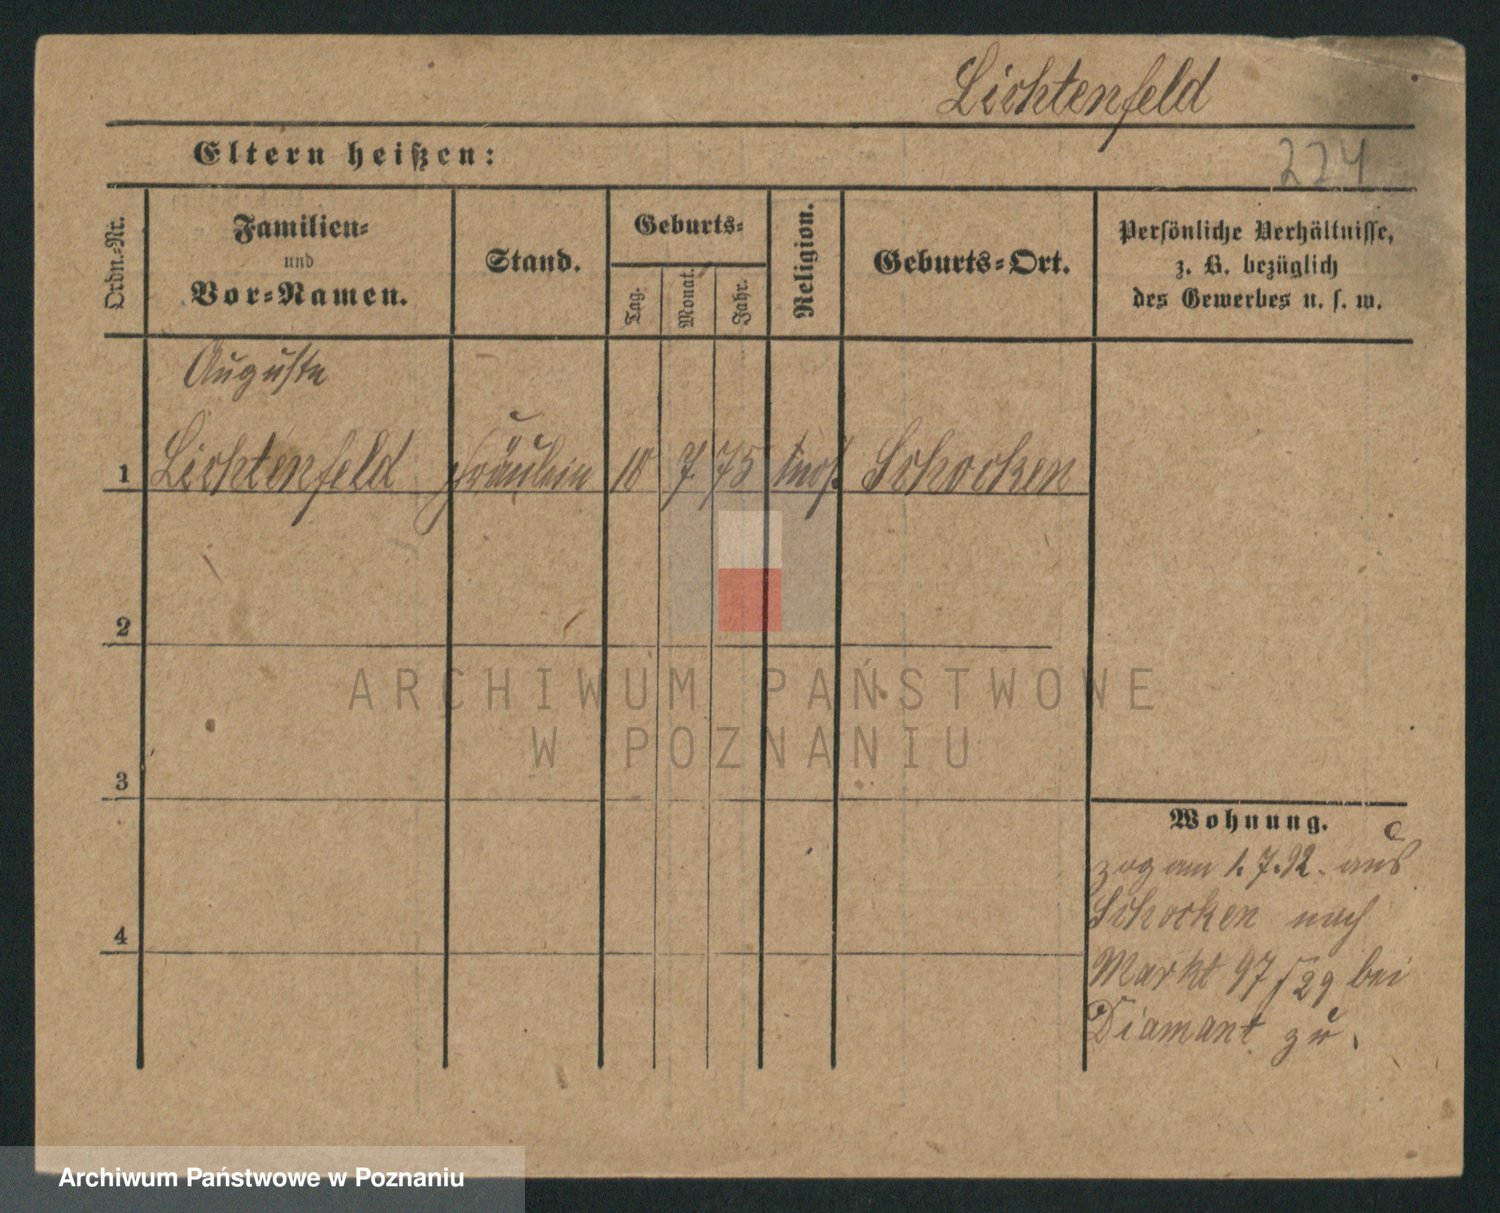 Lichtenfeld
Eltern heißen:
224
Ordn.-Nr.
Familien-
und
Vor-Namen.
Stand.
Geburts-
Tag.
Monat.
Jahr.
Religion.
Geburts-Ort.
Persönliche Verhältnisse,
z. B. bezüglich
des Gewerbes u. s. w.
Auguste
1 Lichtenfeld Fräulein 10 7 75 mos. Schocken
2
ARCHIWUM PAŃSTWOWE
W POZNANIU
3
Wohnung.
zog am 1.7.92. aus
Schocken nach
4
Markt 97/29 bei
Diamant zu.
Archiwum Państwowe w Poznaniu